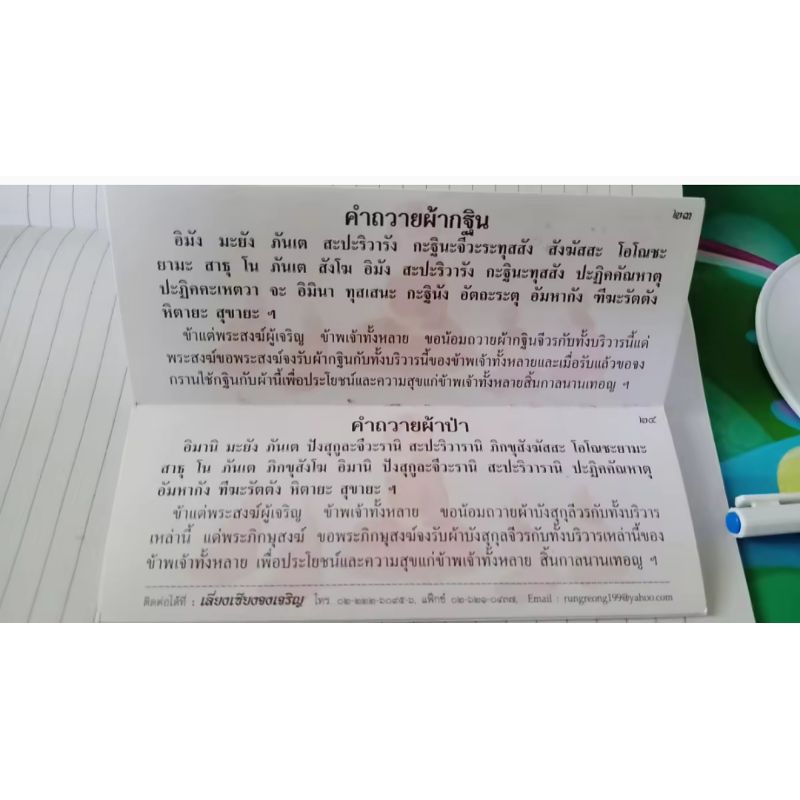 ๒๓
คำถวายผ้ากฐิน
อิมัง มะยัง ภันเต สะปะริวารัง กะฐินะจีวะระทุสสัง สังฆัสสะ โอโณชะ
ยามะ สาธุ โน ภันเต สังโฆ อิมัง สะปะริวารัง กะฐินะทุสสัง ปะฏิคคัณหาตุ
ปะฏิคคะเหตวา จะ อิมินา ทุสเสนะ กะฐินัง อัตถะระตุ อัมหากัง ฑีฆะรัตตัง
หิตายะ สุขายะ ฯ
ข้าแต่พระสงฆ์ผู้เจริญ ข้าพเจ้าทั้งหลาย ขอน้อมถวายผ้ากฐินจีวรกับทั้งบริวารนี้แด่
พระสงฆ์ขอพระสงฆ์จงรับผ้ากฐินกับทั้งบริวารนี้ของข้าพเจ้าทั้งหลายและเมื่อรับแล้วขอจง
กรานใช้กฐินกับผ้านี้เพื่อประโยชน์และความสุขแก่ข้าพเจ้าทั้งหลายสิ้นกาลนานเทอญ ฯ
๒๔
คำถวายผ้าป่า
อิมานิ มะยัง ภันเต ปังสุกูละจีวะรานิ สะปะริวารานิ ภิกขุสังฆัสสะ โอโณชะยามะ
สาธุ โน ภันเต ภิกขุสังโฆ อิมานิ ปังสุกูละจีวะรานิ สะปะริวารานิ ปะฏิคคัณหาตุ
อัมหากัง ฑีฆะรัตตัง หิตายะ สุขายะ ฯ
ข้าแต่พระสงฆ์ผู้เจริญ ข้าพเจ้าทั้งหลาย ขอน้อมถวายผ้าบังสุกุลีวรกับทั้งบริวาร
เหล่านี้ แด่พระภิกษุสงฆ์ ขอพระภิกษุสงฆ์จงรับผ้าบังสุกุลจีวรกับทั้งบริวารเหล่านี้ของ
ข้าพเจ้าทั้งหลาย เพื่อประโยชน์และความสุขแก่ข้าพเจ้าทั้งหลาย สิ้นกาลนานเทอญ ฯ
ติดต่อได้ที่ : เลี่ยงเซียงจงเจริญ โทร. ๐๒-๒๒๒-๖๐๔๕-๖, แฟ็กซ์ ๐๒-๖๒๑-๐๔๓๗, Email : rungreong199@yahoo.com